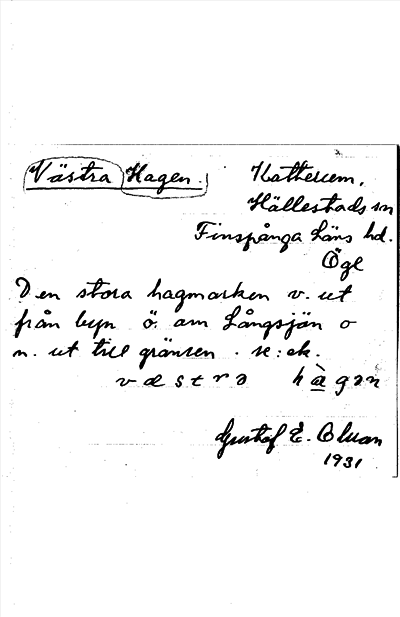 Västra Hagen. Katterum,
Hällestads sn
Finspånga Läns hd.
Ögl
Den stora hagmarken v. ut
från byn ö. om Långsjön o
n. ut till gränsen. se: ek.
västrə hàgən
Gustaf E.
1931